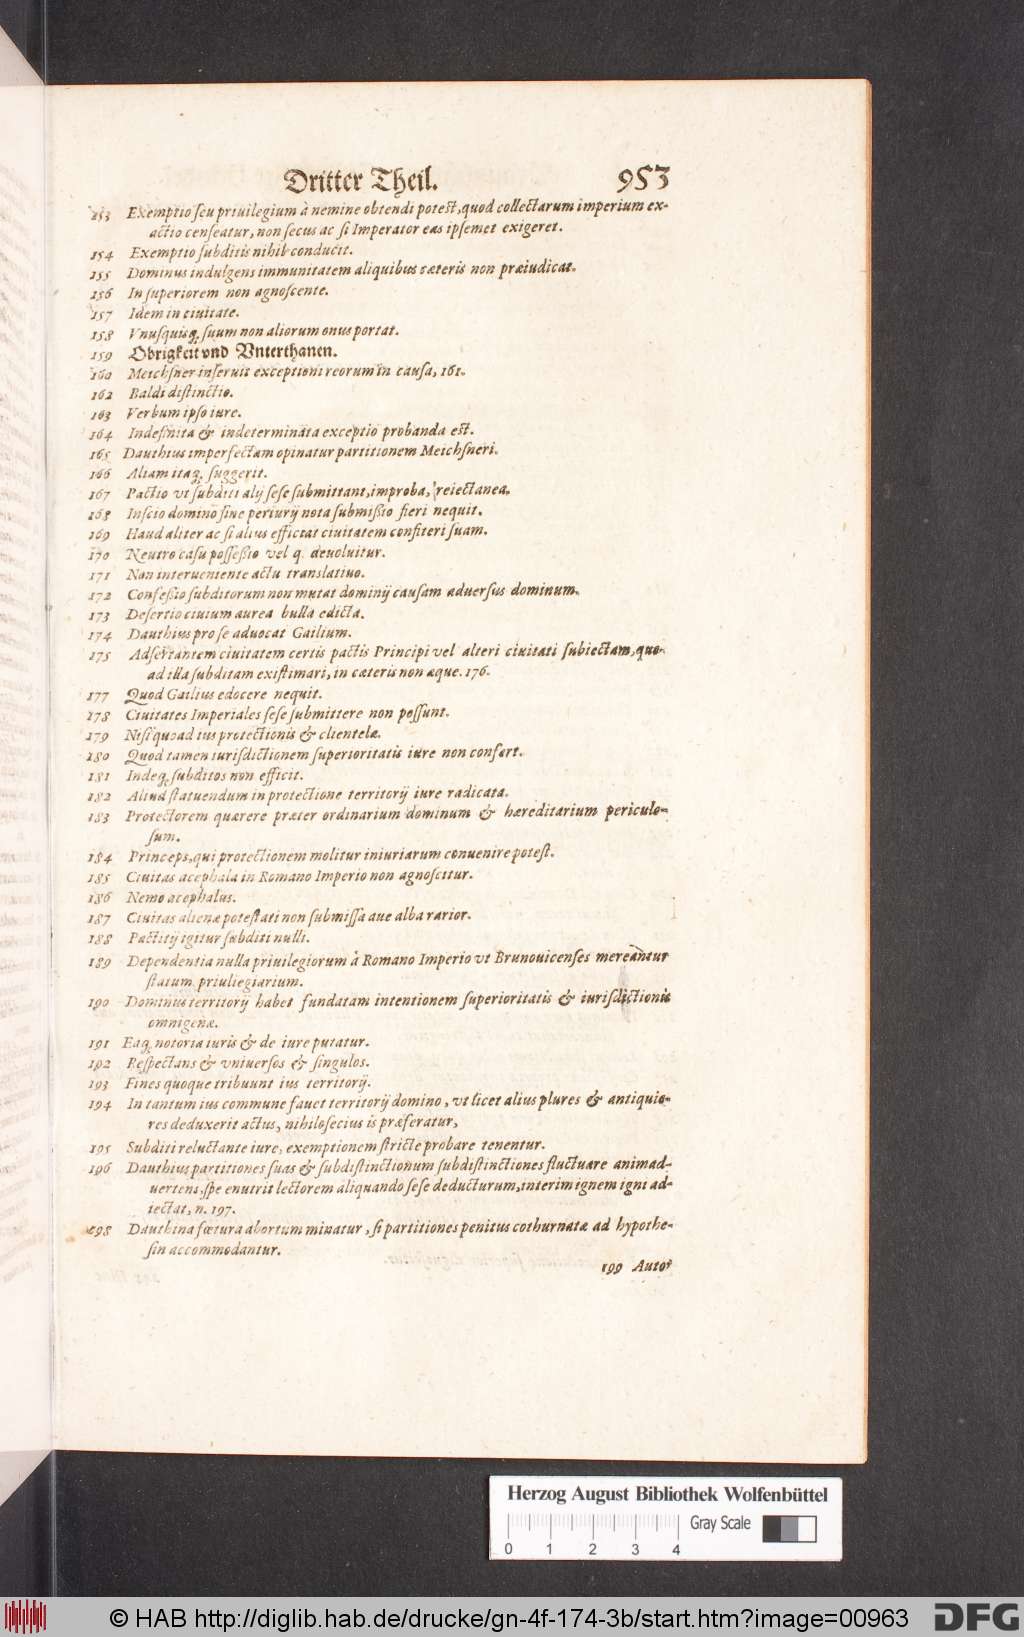 Dritter Theil. 953
153 Exemptio ſeu priuilegium à nemine obtendi poteſt, quod collectarum imperium ex-
actio cenſeatur, non ſecus ac ſi Imperator eas ipſemet exigeret.
154 Exemptio ſubditis nihil conducit.
155 Dominus indulgens immunitatem aliquibus cæteris non præiudicat.
156 In ſuperiorem non agnoſcente.
157 Idem in ciuitate.
158 Vnuſquisq; ſuum non aliorum onus portat.
159 Obrigkeit vnd Vnterthanen.
160 Meichſner inſeruit exceptioni reorum in cauſa, 161.
162 Baldi diſtinctio.
163 Verbum ipſo iure.
164 Indefinita & indeterminata exceptio probanda eſt.
165 Dauthius imperfectam opinatur partitionem Meichſneri.
166 Aliam itaq; ſuggerit.
167 Pactio vt ſubditi alij ſeſe ſubmittant, improba, reiectanea.
168 Inſcio domino ſine periurij nota ſubmiſſio fieri nequit.
169 Haud aliter ac ſi alius efficiat ciuitatem confiteri ſuam.
170 Neutro caſu poſſeſſio vel q. deuoluitur.
171 Non interueniente actu translatiuo.
172 Confeſſio ſubditorum non mutat dominij cauſam aduerſus dominum.
173 Deſertio ciuium aurea bulla edicta.
174 Dauthius pro ſe aduocat Gailium.
175 Adſertantem ciuitatem certis pactis Principi vel alteri ciuitati ſubiectam, quo-
ad illa ſubditam exiſtimari, in cæteris non æque. 176.
177 Quod Gailius edocere nequit.
178 Ciuitates Imperiales ſeſe ſubmittere non poſſunt.
179 Niſi quoad ius protectionis & clientelæ.
180 Quod tamen iuriſdictionem ſuperioritatis iure non confert.
181 Indeq; ſubditos non efficit.
182 Aliud ſtatuendum in protectione territorij iure radicata.
183 Protectorem quærere præter ordinarium dominum & hæreditarium periculo-
ſum.
184 Princeps, qui protectionem molitur iniuriarum conuenire poteſt.
185 Ciuitas acephala in Romano Imperio non agnoſcitur.
186 Nemo acephalus.
187 Ciuitas alienæ poteſtati non ſubmiſſa aue alba rarior.
188 Pactitij igitur ſubditi nulli.
189 Dependentia nulla priuilegiorum à Romano Imperio vt Brunouicenſes mereantur
ſtatum priuliegiarium.
190 Dominus territorij habet fundatam intentionem ſuperioritatis & iuriſdictionis
omnigenæ.
191 Eaq; notoria iuris & de iure putatur.
192 Reſpectans & vniuerſos & ſingulos.
193 Fines quoque tribuunt ius territorij.
194 In tantum ius commune fauet territorij domino, vt licet alius plures & antiquio-
res deduxerit actus, nihiloſecius is præferatur,
195 Subditi reluctante iure, exemptionem ſtricte probare tenentur.
196 Dauthius partitiones ſuas & ſubdiſtinctionum ſubdiſtinctiones fluctuare animad-
uertens, ſpe enutrit lectorem aliquando ſeſe deducturum, interim ignem igni ad-
iectat, n. 197.
198 Dauthina fœtura abortum minatur, ſi partitiones penitus cothurnatæ ad hypothe-
ſin accommodantur.
199 Autor
Herzog August Bibliothek Wolfenbüttel
Gray Scale
0 1 2 3 4
© HAB http://diglib.hab.de/drucke/gn-4f-174-3b/start.htm?image=00963 DFG